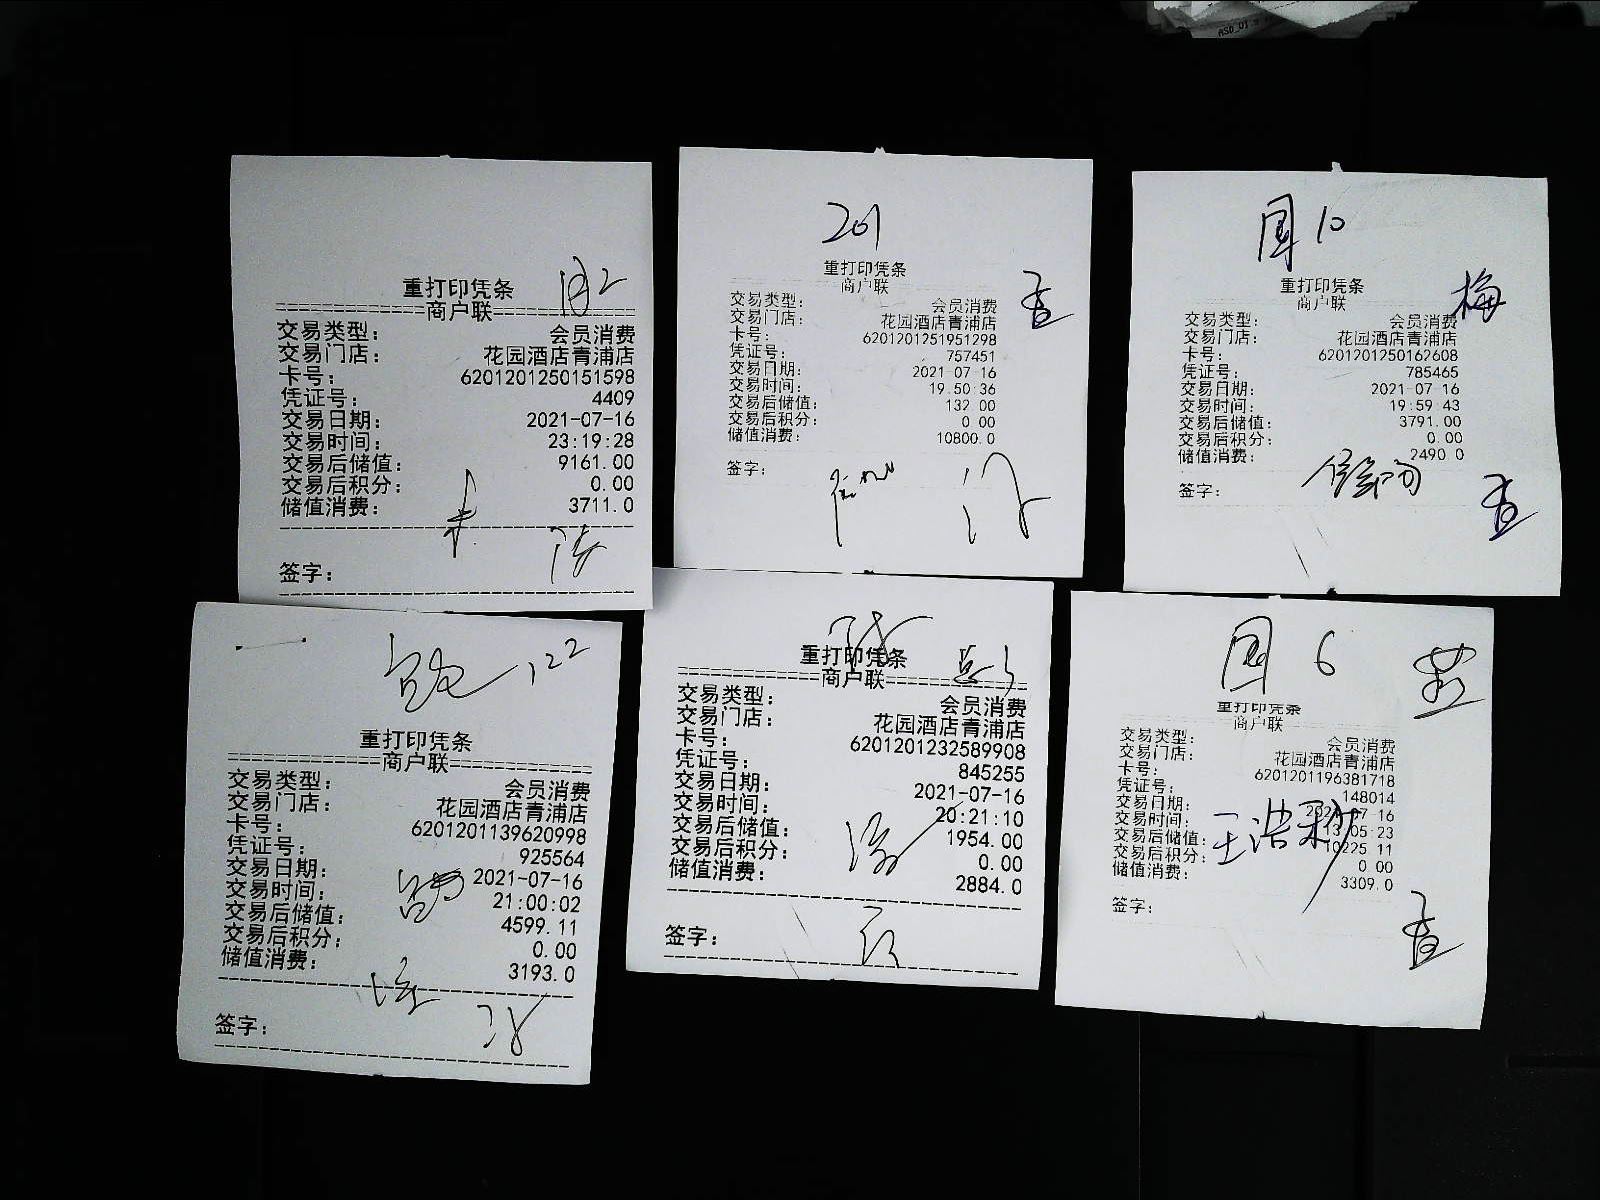 重打印凭条
商户联
交易类型： 会员消费
交易门店： 花园酒店青浦店
卡号： 6201201250151598
凭证号： 4409
交易日期： 2021-07-16
交易时间： 23:19:28
交易后储值： 9161.00
交易后积分： 0.00
储值消费： 3711.0
签字：
201
重打印凭条
商户联
交易类型： 会员消费
交易门店： 花园酒店青浦店
卡号： 6201201251951298
凭证号： 757451
交易日期： 2021-07-16
交易时间： 19:50:36
交易后储值： 132.00
交易后积分： 0.00
储值消费： 10800.0
签字：
国10
梅
重打印凭条
商户联
交易类型： 会员消费
交易门店： 花园酒店青浦店
卡号： 6201201250162608
凭证号： 785465
交易日期： 2021-07-16
交易时间： 19:59:43
交易后储值： 3791.00
交易后积分： 0.00
储值消费： 2490.0
签字：
122
重打印凭条
商户联
交易类型： 会员消费
交易门店： 花园酒店青浦店
卡号： 6201201139620998
凭证号： 925564
交易日期： 2021-07-16
交易时间： 21:00:02
交易后储值： 4599.11
交易后积分： 0.00
储值消费： 3193.0
签字：
重打印凭条
商户联
交易类型： 会员消费
交易门店： 花园酒店青浦店
卡号： 6201201232589908
凭证号： 845255
交易日期： 2021-07-16
交易时间： 20:21:10
交易后储值： 1954.00
交易后积分： 0.00
储值消费： 2884.0
签字：
国6
重打印凭条
商户联
交易类型： 会员消费
交易门店： 花园酒店青浦店
卡号： 6201201196381718
凭证号： 148014
交易日期： 2021-07-16
交易时间： 13:05:23
交易后储值： 10225.11
交易后积分： 0.00
储值消费： 3309.0
签字：